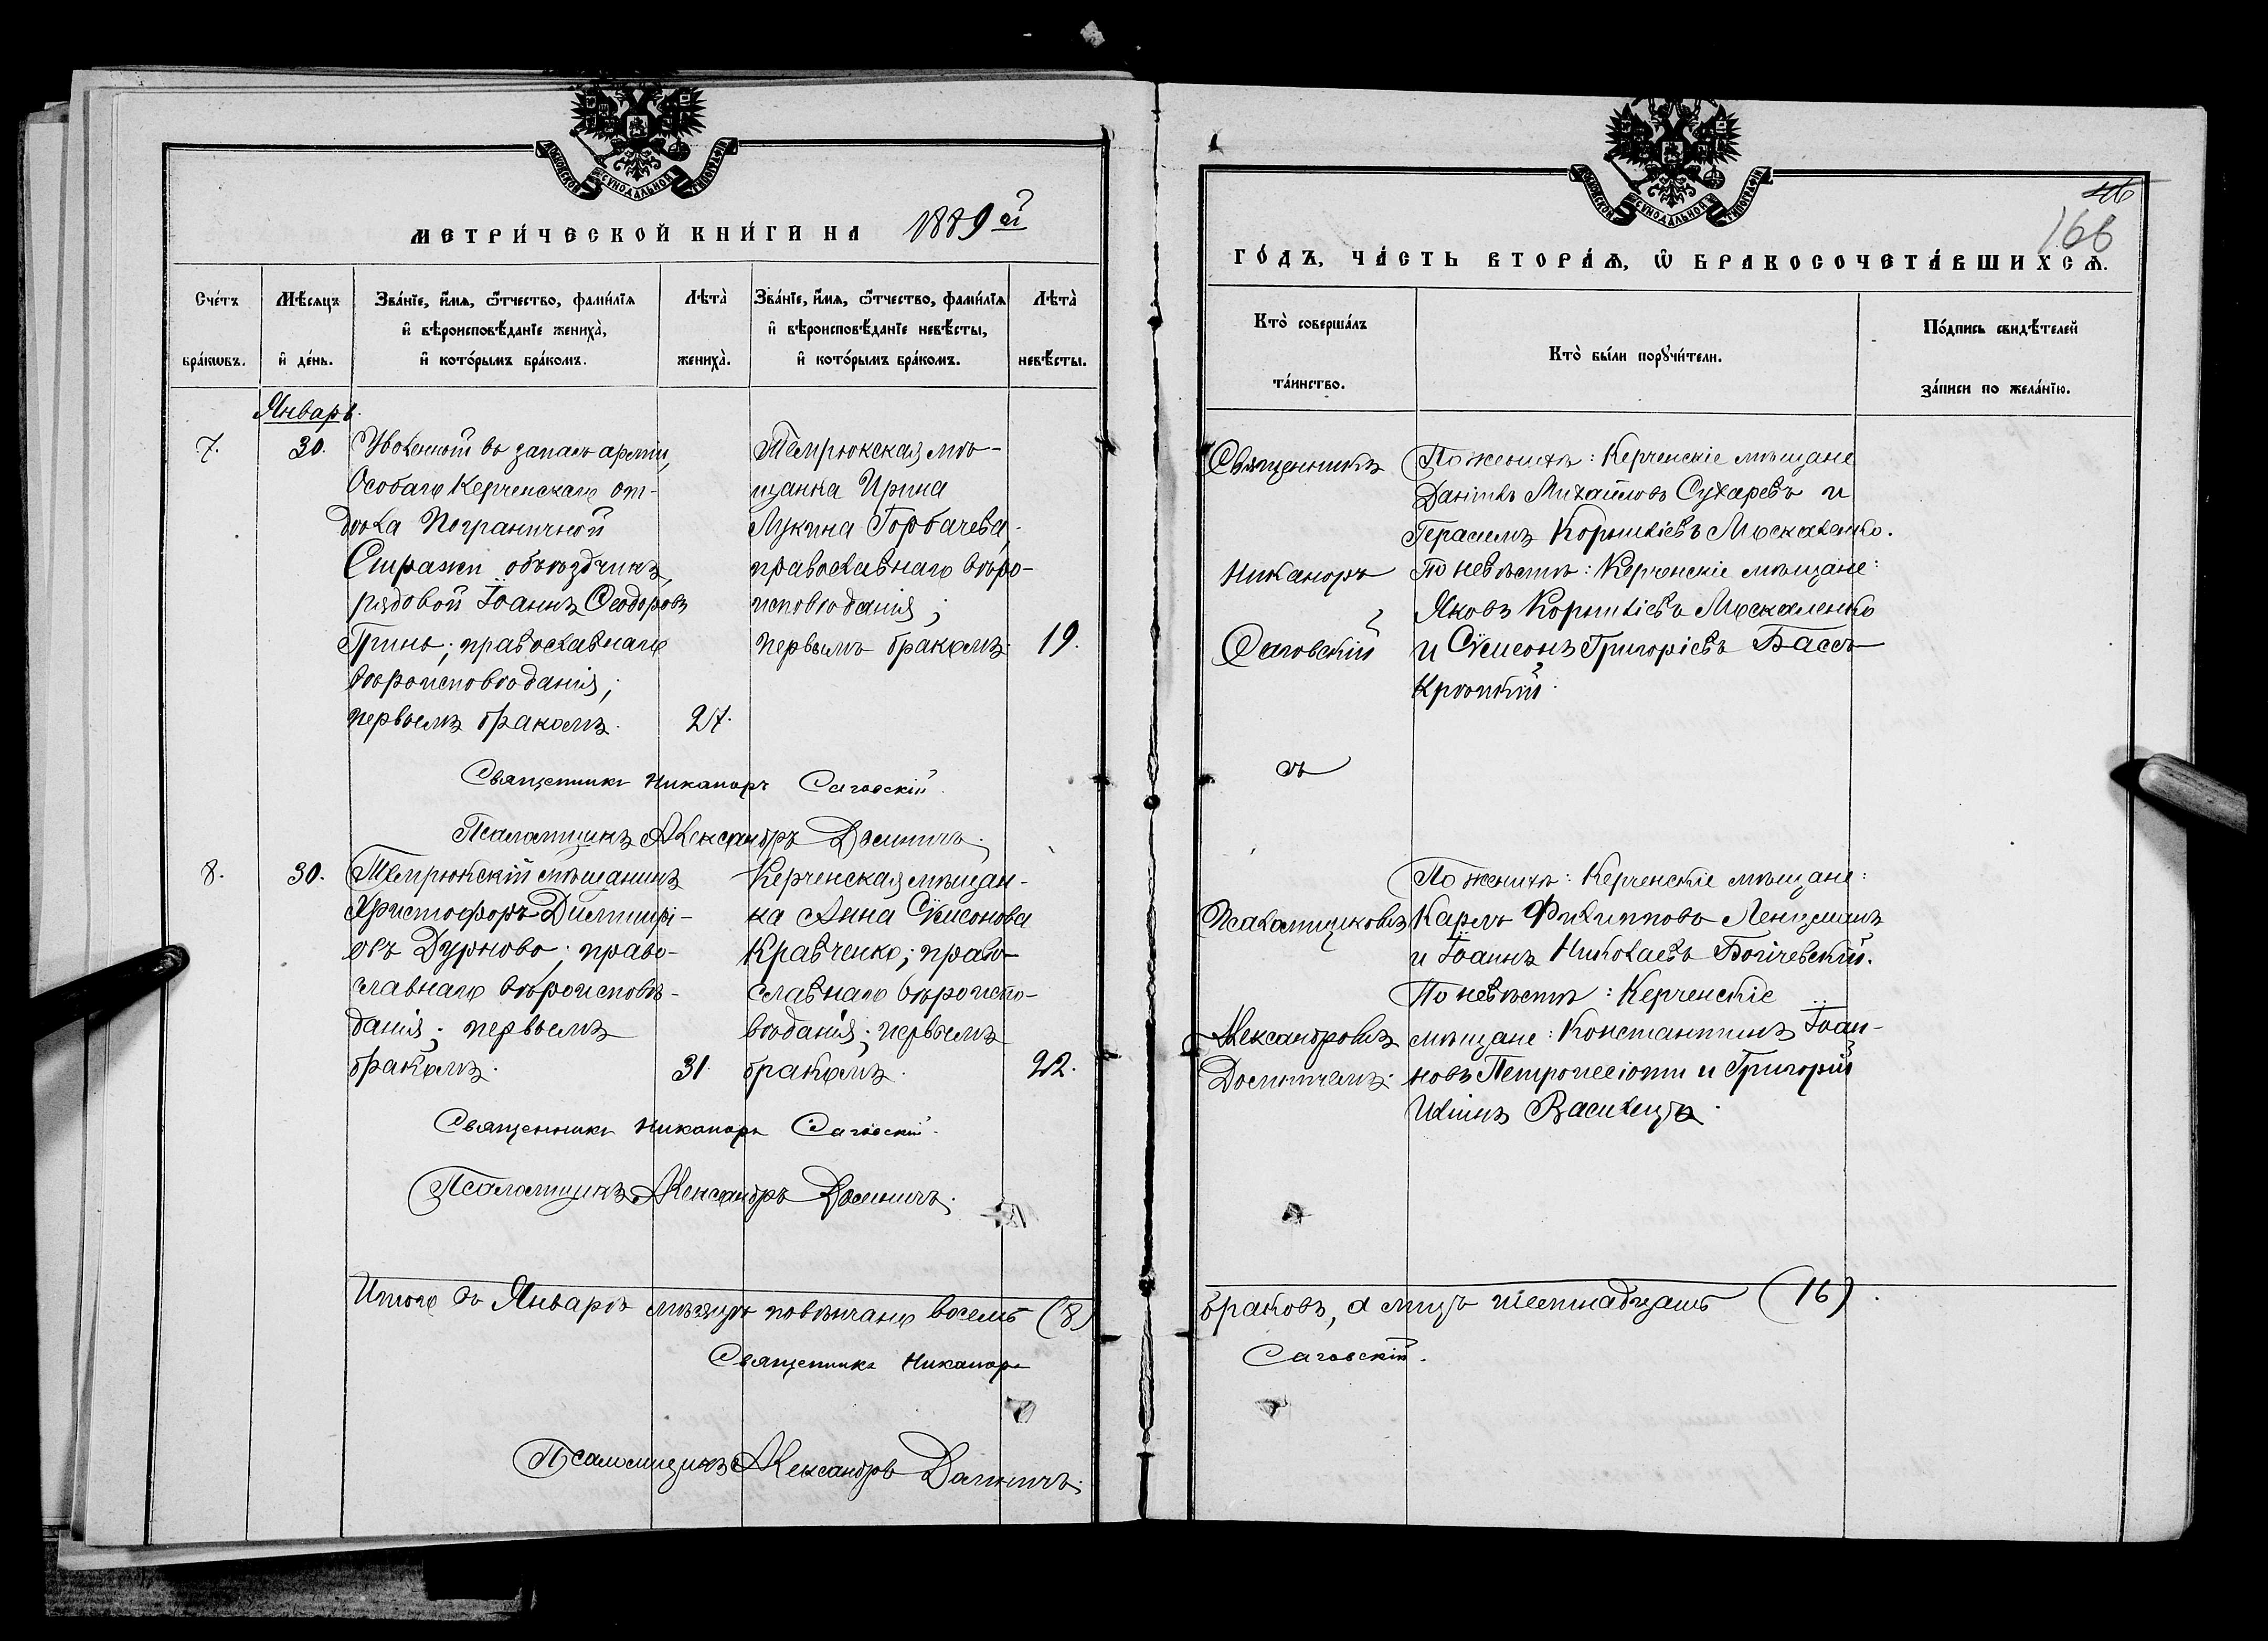 МОСКОВСКОЙ СУНОДАЛЬНОЙ ТИПОГРАФІИ
МЕТРИ́ЧЕСКОЙ КНИ́ГИ НА 1889ый
Сче́тъ бра́кѡвъ.
Мѣ́сяцъ и҆ де́нь.
Зва́нїе, и҆́мя, ѻ҆́тчество, фами́лїя
и҆ вѣроисповѣ́данїе жениха̀,
и҆ кото́рымъ бра́комъ.
Лѣта̀ жениха̀.
Зва́нїе, и҆́мя, ѻ҆́тчество, фами́лїя
и҆ вѣроисповѣ́данїе невѣ́сты,
и҆ кото́рымъ бра́комъ.
Лѣта̀ невѣ́сты.
Январь.
7.
30.
Уволенный въ запасъ арміи,
Особаго Керченскаго От-
дѣла Пограничной
Стражи объѣздчикъ,
рядовой Іоаннъ Ѳеодоровъ
Гринь; православнаго
вѣроисповѣданія;
первымъ бракомъ.
27.
Темрюкская мѣ-
щанка Ирина
Лукина Горбачева,
православнаго вѣро-
исповѣданія;
первымъ бракомъ.
19.
Священникъ Никаноръ Саговскій.
Псаломщикъ Александръ Доминичъ.
8.
30.
Темрюкскій мѣщанинъ
Христофоръ Димитрі-
евъ Дурново; право-
славнаго вѣроисповѣ-
данія; первымъ
бракомъ.
31.
Керченская мѣщан-
ка Анна Сѵмеонова
Кравченко; право-
славнаго вѣроиспо-
вѣданія; первымъ
бракомъ.
22.
Священникъ Никаноръ Саговскій.
Псаломщикъ Александръ Доминичъ.
Итого въ Январѣ мѣсяцѣ повѣнчано восемь (8)
Священникъ Никаноръ
Псаломщикъ Александръ Доминичъ.
МОСКОВСКОЙ СУНОДАЛЬНОЙ ТИПОГРАФІИ
46
166
ГО́ДЪ, ЧА́СТЬ ВТОРА́Ѧ, Ѽ БРАКОСОЧЕТА́ВШИХСѦ.
Кто̀ соверша́лъ
та́инство.
Кто̀ бы́ли порꙋчи́тели.
По́дпись свидѣ́телей
за́писи по жела́нїю.
Священникъ
Никаноръ
Саговскій
съ
По женихѣ: Керченскіе мѣщане
Даніилъ Михайловъ Сухаревъ и
Герасимъ Корниліевъ Москаленко.
По невѣстѣ: Керченскіе мѣщане:
Яковъ Корниліевъ Москаленко
и Сѵмеонъ Григоріевъ Бассъ
Крѣпкій.
Псаломщикомъ
Александромъ
Доминичемъ.
По женихѣ: Керченскіе мѣщане:
Карлъ Филипповъ Ленцманъ
и Іоаннъ Николаевъ Богачевскій.
По невѣстѣ: Керченскіе
мѣщане: Константинъ Іоан-
новъ и Григорій
Иліинъ Василець.
браковъ, а лицъ шестнадцать (16).
Саговскій.